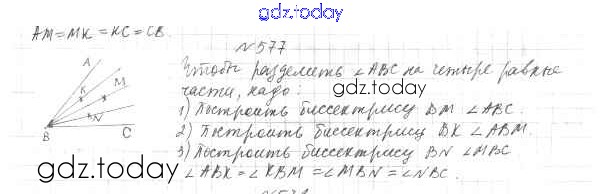 gdz.today
AM = MK = KC = CB.
№577
Чтобы разделить ∠ABC на четыре равные
части, надо:
1) Построить биссектрису BM ∠ABC.
2) Построить биссектрису BK ∠ABM.
3) Построить биссектрису BN ∠MBC
∠ABK = ∠KBM = ∠MBN = ∠NBC.
A
M
K
N
B
C
gdz.today
gdz.today